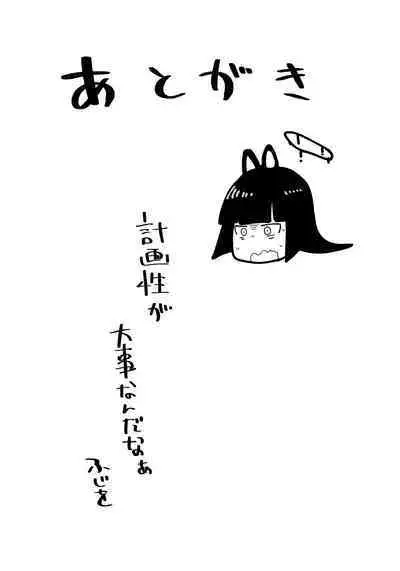 あとがき
計画性が
大事なんだなぁ
ふじを